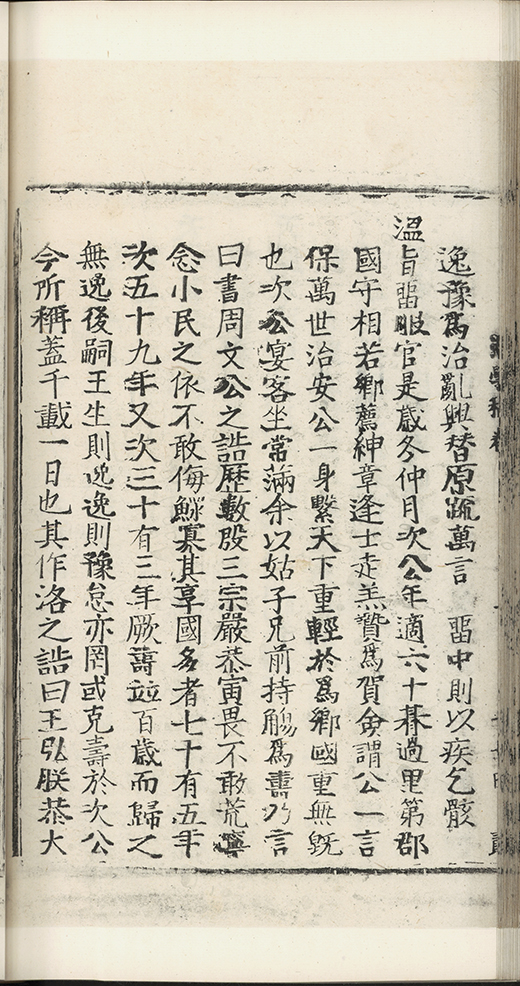 逸豫爲治亂興替原疏萬言　畱中則以疾乞骸
溫旨畱眂官是歲冬仲月次公年適六十朞過里第郡
國守相若鄉薦紳章逢士走羔贄爲賀僉謂公一言
保萬世治安公一身繫天下重輕於爲鄉國重無旣
也次公宴客坐常滿余以姑子兄前持觴爲壽乃言
曰書周文公之誥歷數殷三宗嚴恭寅畏不敢荒寧
念小民之依不敢侮鰥寡其享國多者七十有五年
次五十九年又次三十有三年厥壽竝百歲而歸之
無逸後嗣王生則逸逸則豫怠亦罔或克壽於次公
今所稱蓋千載一日也其作洛之誥曰王弘朕恭大